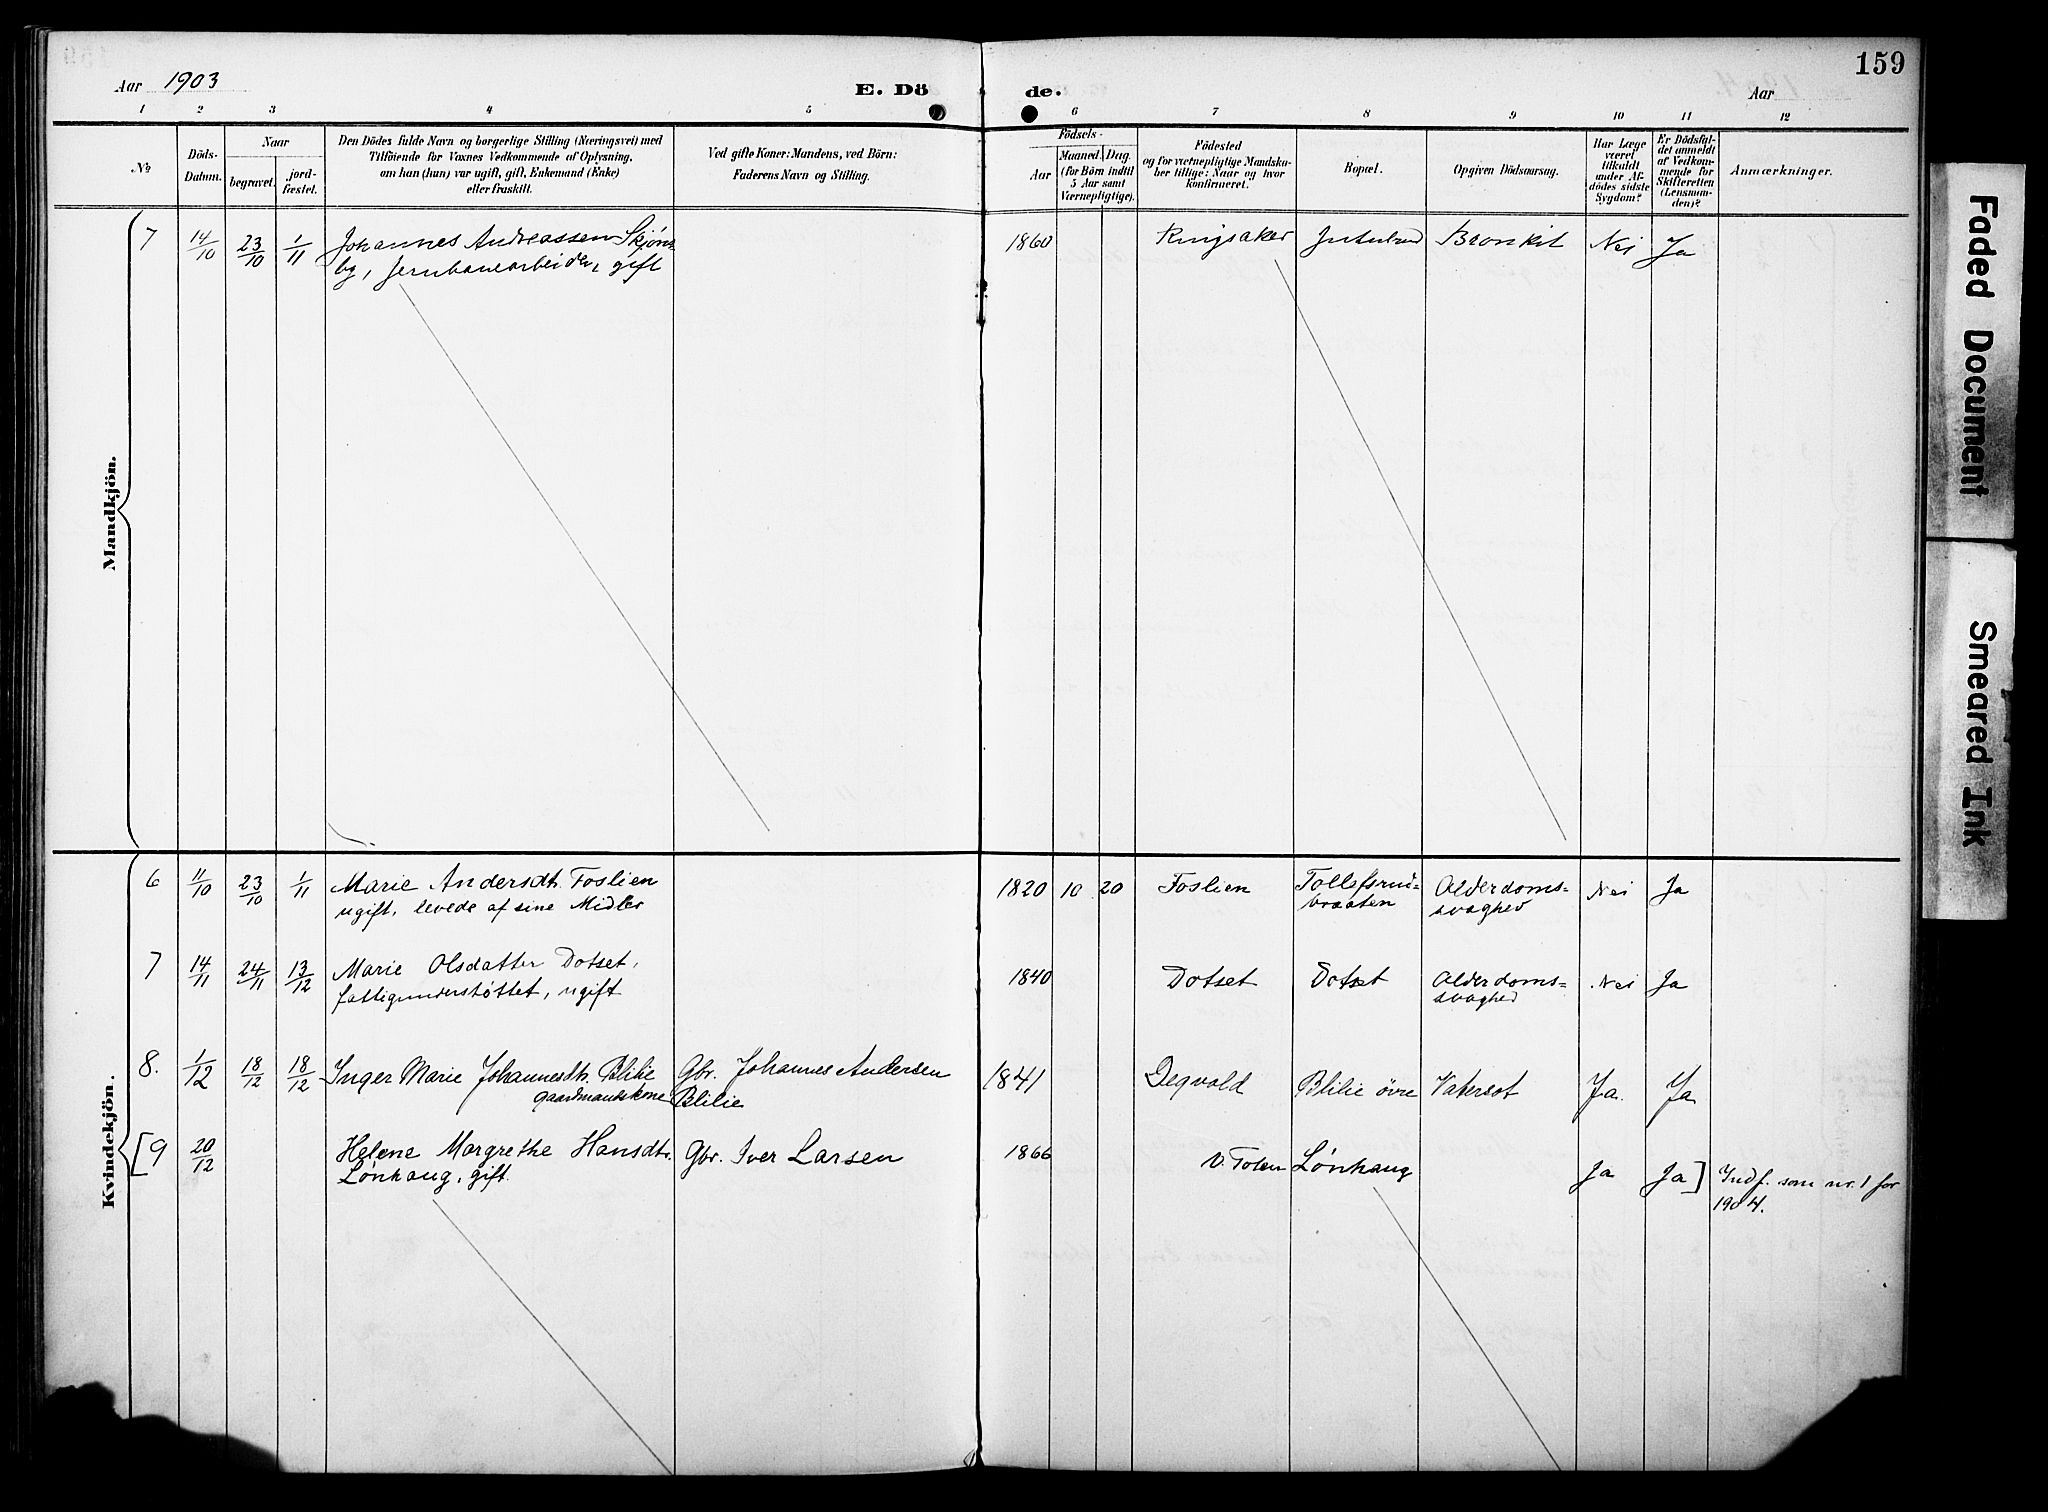 159
Aar 1903
E. Dö
de.
Aar
1 2 3 4 5 6 7 8 9 10 11 12
No.
Döds-
Datum.
Naar
begravet.
jord-
fæstet.
Den Dödes fulde Navn og borgerlige Stilling (Næringsvei) med
Tilföiende for Voxnes Vedkommende af Oplysning,
om han (hun) var ugift, gift, Enkemand (Enke)
eller fraskilt.
Ved gifte Koner: Mandens, ved Börn:
Faderens Navn og Stilling.
Födsels-
Aar
Maaned. Dag.
(for Börn indtil
5 Aar samt
Værnepligtige).
Födested
og for værnepligtige Mandska-
ber tillige: Naar og hvor
konfirmeret.
Bopæl.
Opgiven Dödsaarsag.
Har Læge
været
tilkaldt
under Af-
dödes sidste
Sygdom?
Er Dödsfal-
det anmeldt
af Vedkom-
mende for
Skifteretten
(Lensman-
den)?
Anmærkninger.
Mandkjön.
7 14/10 23/10 1/11 Johannes Andreassen Skjøns-
bg, Jernbanearbeider, gift
1860 Ringsaker Bronkit Nei Ja
Kvindekjön.
6 11/10 23/10 1/11 Marie Andersdt. Foslien
ugift, levede af sine Midler
1820 10 20 Foslien Tollefsrud-
braaten
Alderdoms-
svaghed
Nei Ja
7 14/11 24/11 13/12 Marie Olsdatter Dotset,
fattigunderstøttet, ugift
1840 Dotset Dotset Alderdoms-
svaghed
Nei Ja
8. 1/12 18/12 18/12 Inger Marie Johannesdt. Blilie
gaardmandskone
Gbr. Johannes Andersen
Blilie
1841 Degvold Blilie øvre Vatersot Ja. Ja
[9 20/12 Helene Margrethe Hansdt.
Lønhaug, gift.
Gbr. Iver Larsen
1866 V. Toten Lønhaug Ja Ja] Indf. som nr. 1 for
1904.
Faded Document
Smeared Ink